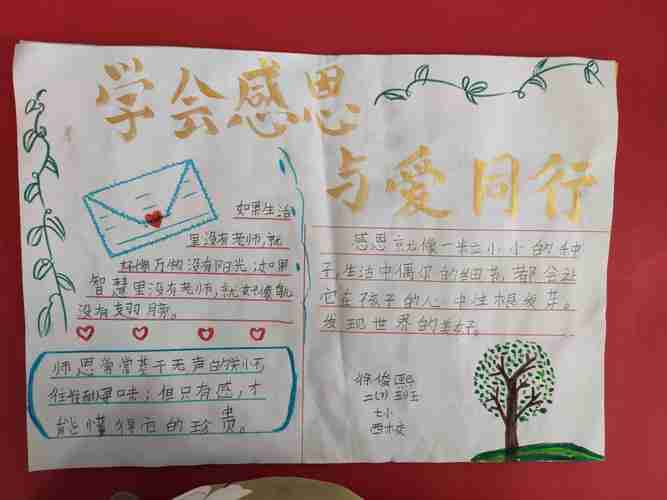 学会感恩
与爱同行
如果生活
里没有老师,就
好像万物没有阳光;如果
智慧里没有老师,就好像鸟
没有翅膀。
师恩常常基于无声的
往往
;但只有感,才
能懂得它的珍贵。
感恩就像一粒小小的种
子,生活中偶尔的细节,都会让
它在孩子的心中生根发芽。
发现世界的美好。
徐俊熙
二(7)班
七小
西校